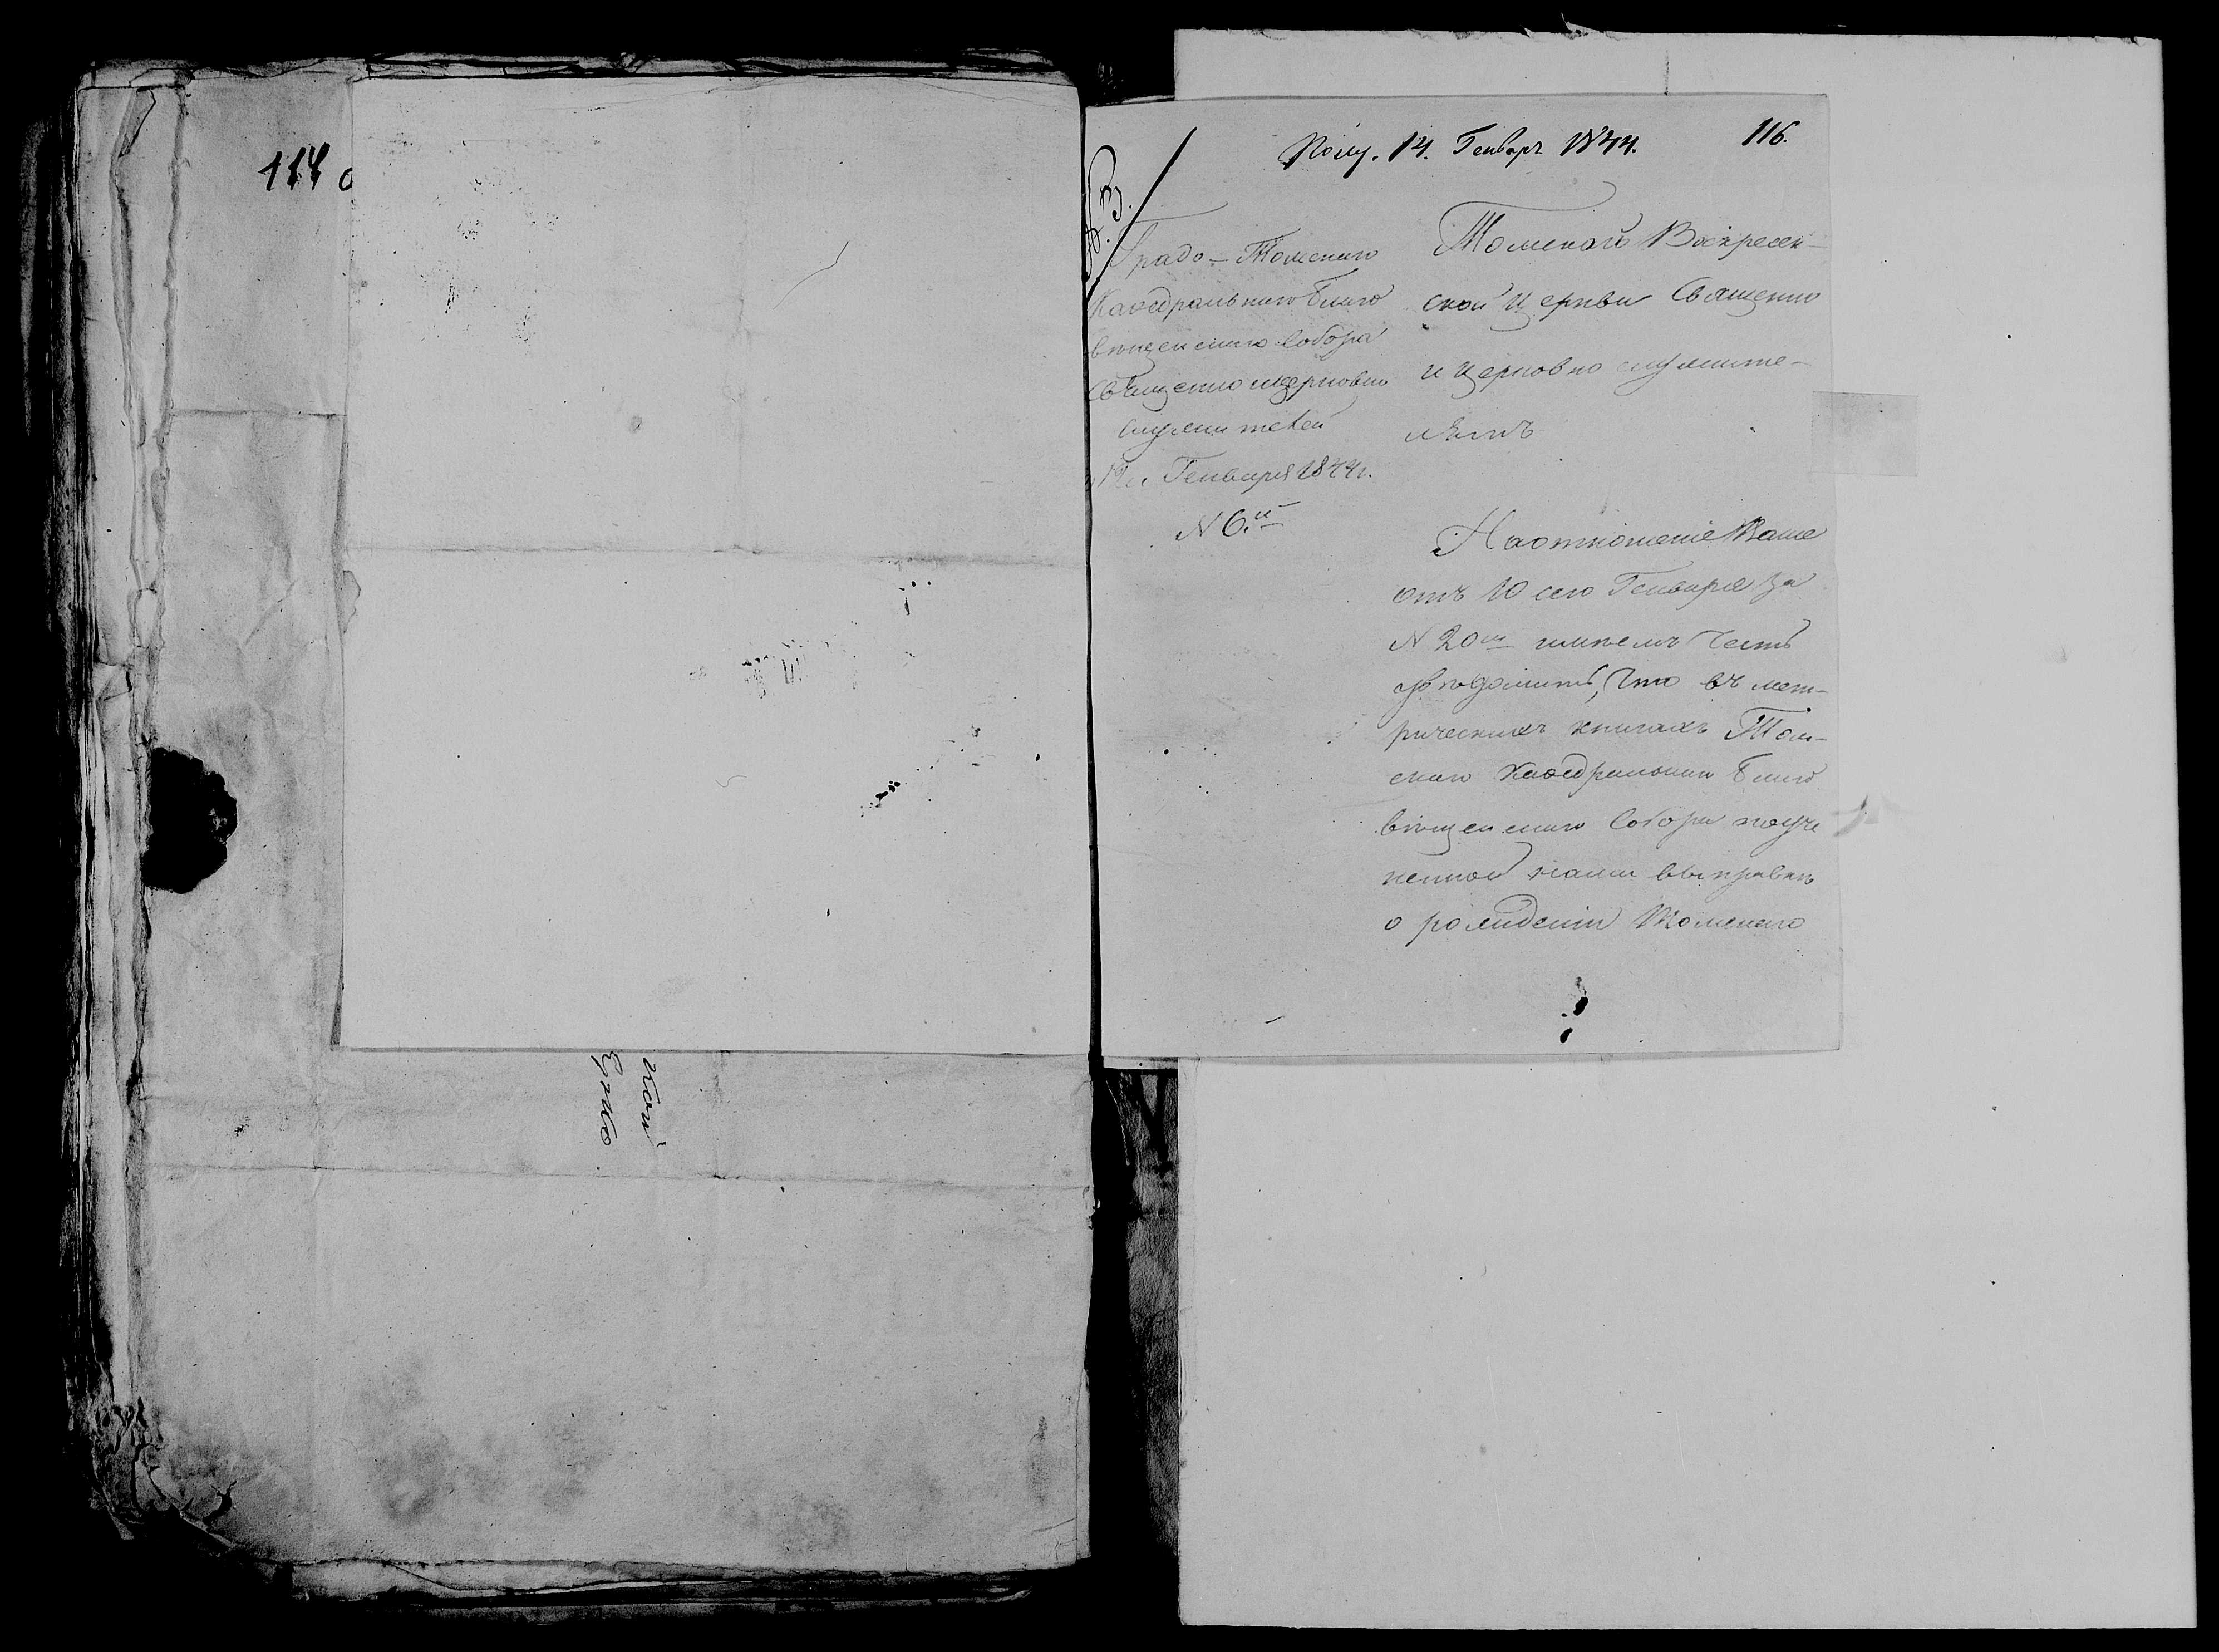 114 о
кой
Полу. 14. Генваря 1844.
116.
Градо-Томскаго
Каѳедральнаго Благо
вѣщенскаго Собора
Священноицерковно
служителей
12 Генваря 1844 г.
N 6.й
Томской Воскресен-
ской Церкви Священно
и Церковно служите-
лямъ
На отношеніе Ваше
отъ 10 сего Генваря за
N 20м имѣемъ честь
увѣдомить, что въ мет-
рическихъ книгахъ Том-
скаго Каѳедральнаго Благо
вѣщенскаго Собора поучи
ненной нами выправкѣ
о рожденіи Томскаго